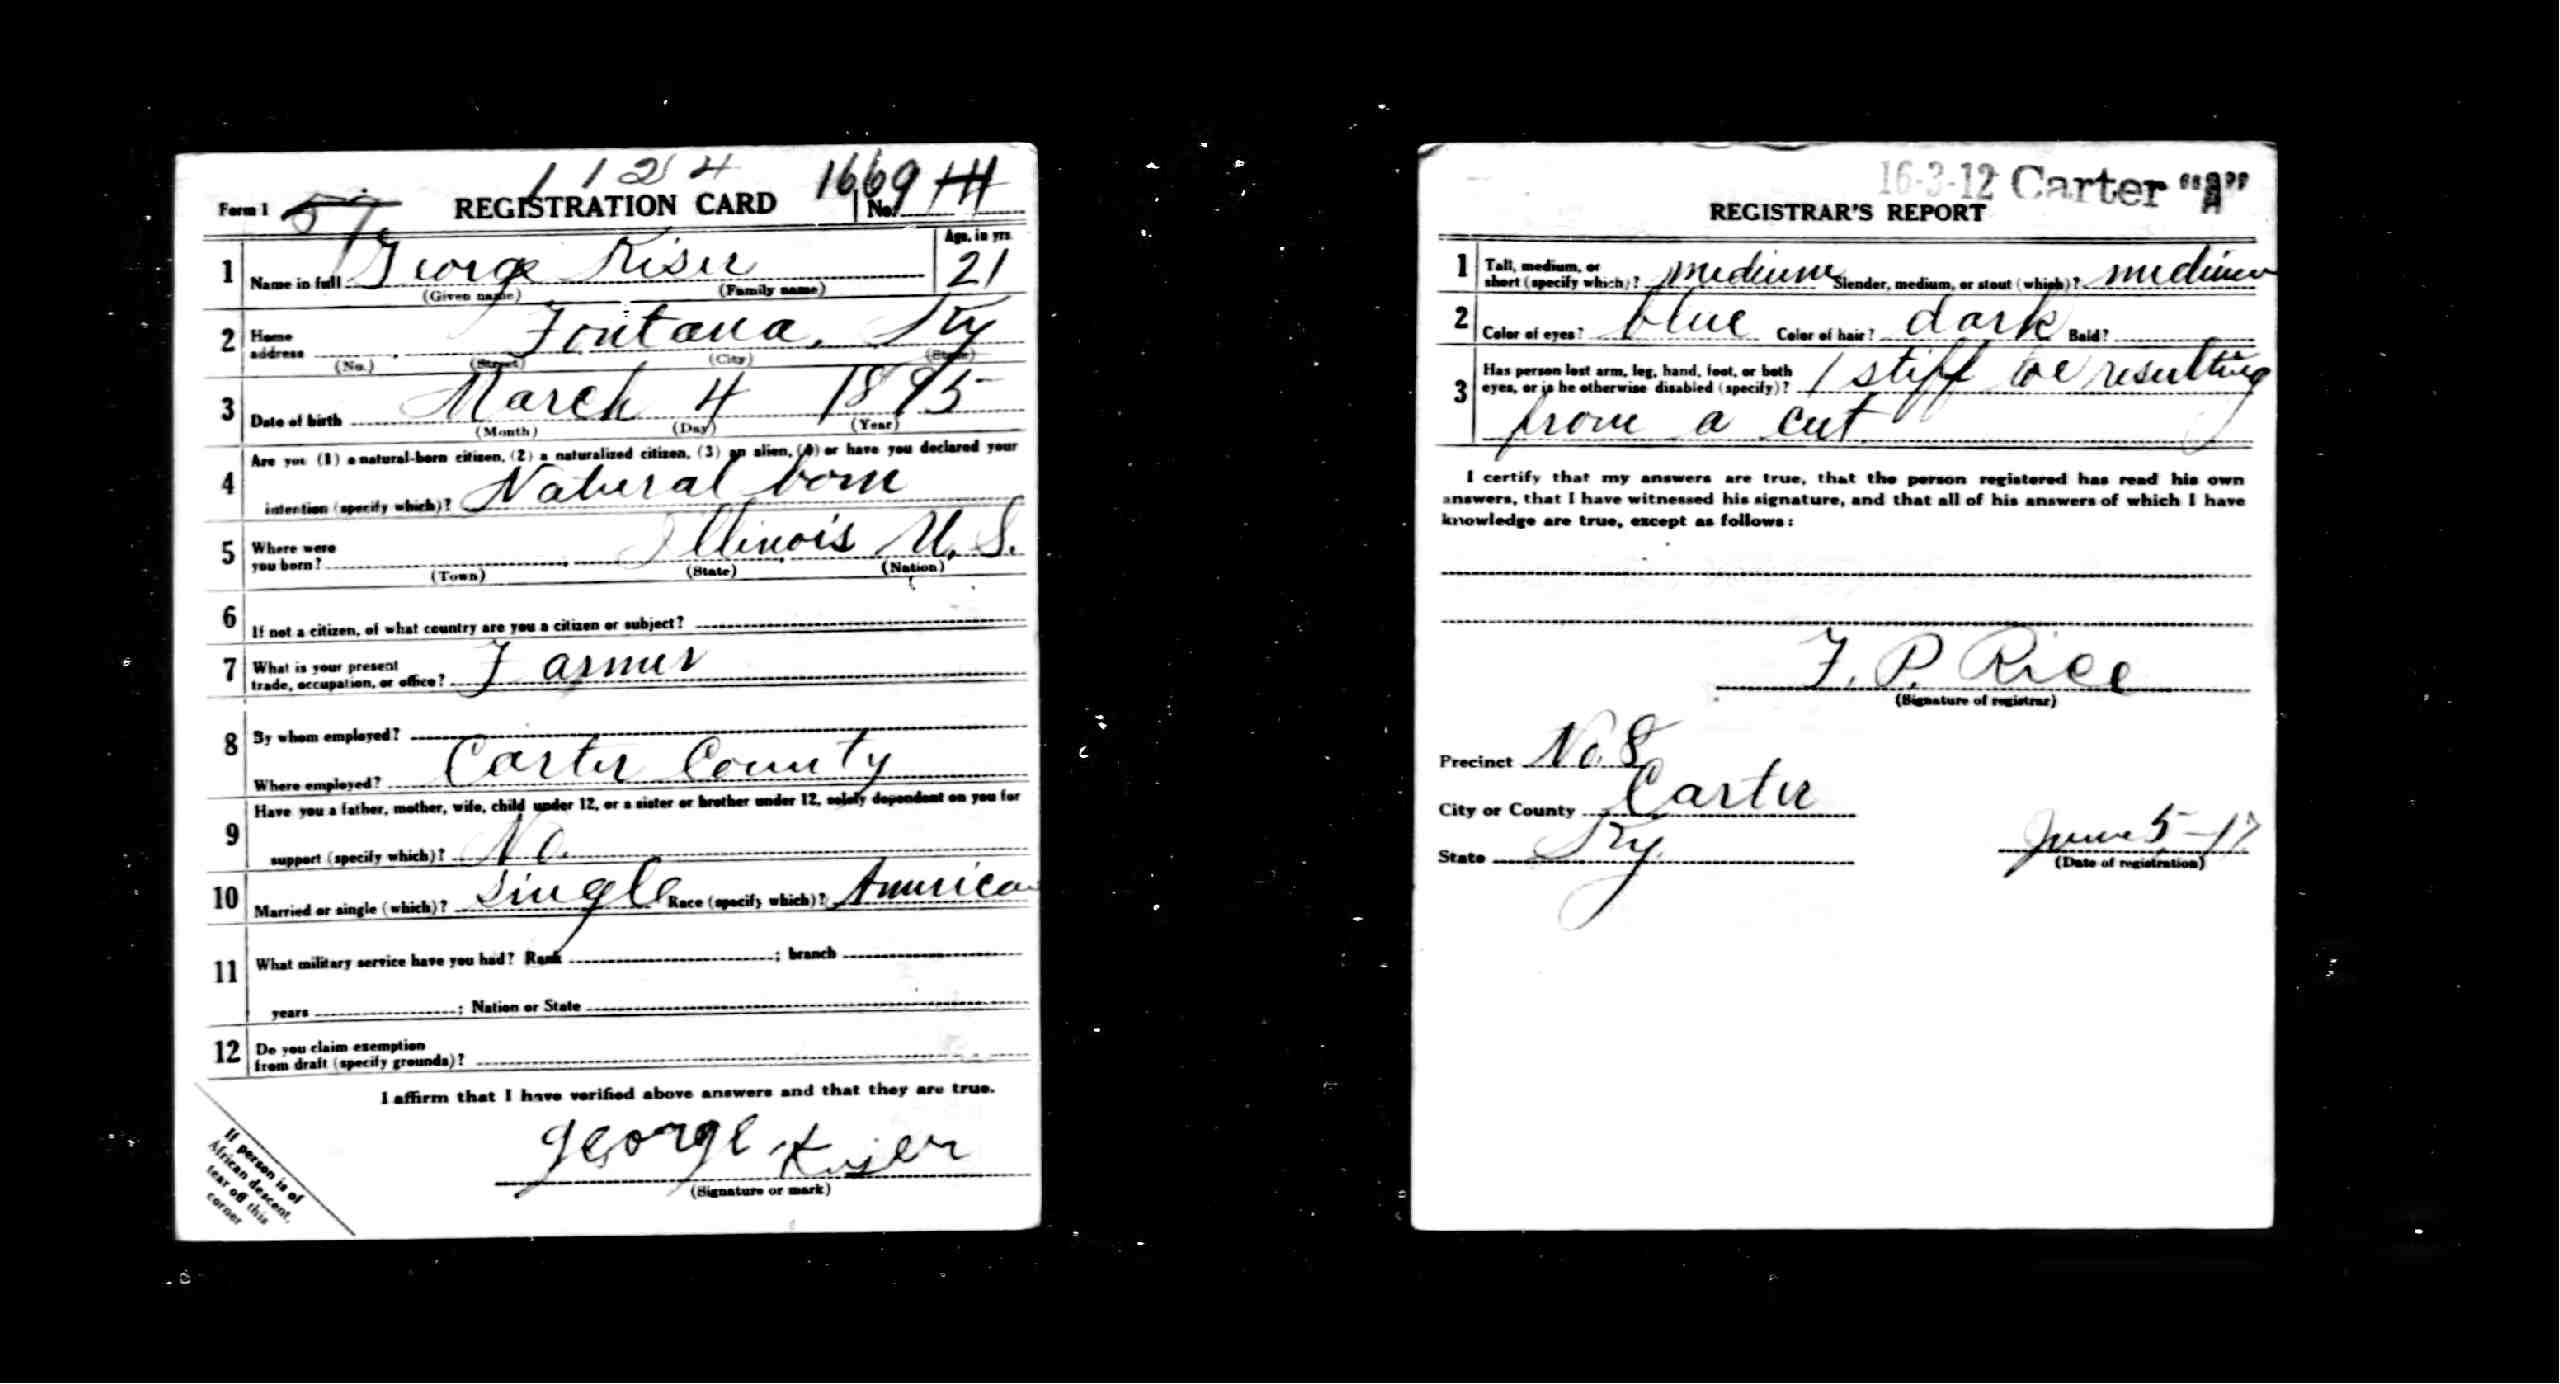 1 1 2 4
1669
Form 1 59 REGISTRATION CARD No.
1 Name in full George Kiser Age, in yrs. 21
(Given name) (Family name)
2 Home address Fontana, Ky
(No.) (Street) (City) (State)
3 Date of birth March 4 1895
(Month) (Day) (Year)
4 Are you (1) a natural-born citizen, (2) a naturalized citizen, (3) an alien, (4) or have you declared your
intention (specify which)? Natural born
5 Where were you born? Illinois U. S.
(Town) (State) (Nation)
6 If not a citizen, of what country are you a citizen or subject?
7 What is your present
trade, occupation, or office? Farmer
8 By whom employed?
Where employed? Carter County
9 Have you a father, mother, wife, child under 12, or a sister or brother under 12, solely dependent on you for
support (specify which)? No.
10 Married or single (which)? Single Race (specify which)? American
11 What military service have you had? Rank ; branch
years ; Nation or State
12 Do you claim exemption
from draft (specify grounds)?
I affirm that I have verified above answers and that they are true.
George Kiser
(Signature or mark)
If person is of
African descent,
tear off this
corner
16-3-12 Carter "A"
REGISTRAR'S REPORT
1 Tall, medium, or
short (specify which)? medium Slender, medium, or stout (which)? medium
2 Color of eyes? blue Color of hair? dark Bald?
3 Has person lost arm, leg, hand, foot, or both
eyes, or is he otherwise disabled (specify)? 1 stiff toe resulting
from a cut
I certify that my answers are true, that the person registered has read his own
answers, that I have witnessed his signature, and that all of his answers of which I have
knowledge are true, except as follows:
F. P. Rice
(Signature of registrar)
Precinct No. 8
City or County Carter
State Ky. June 5-17
(Date of registration)